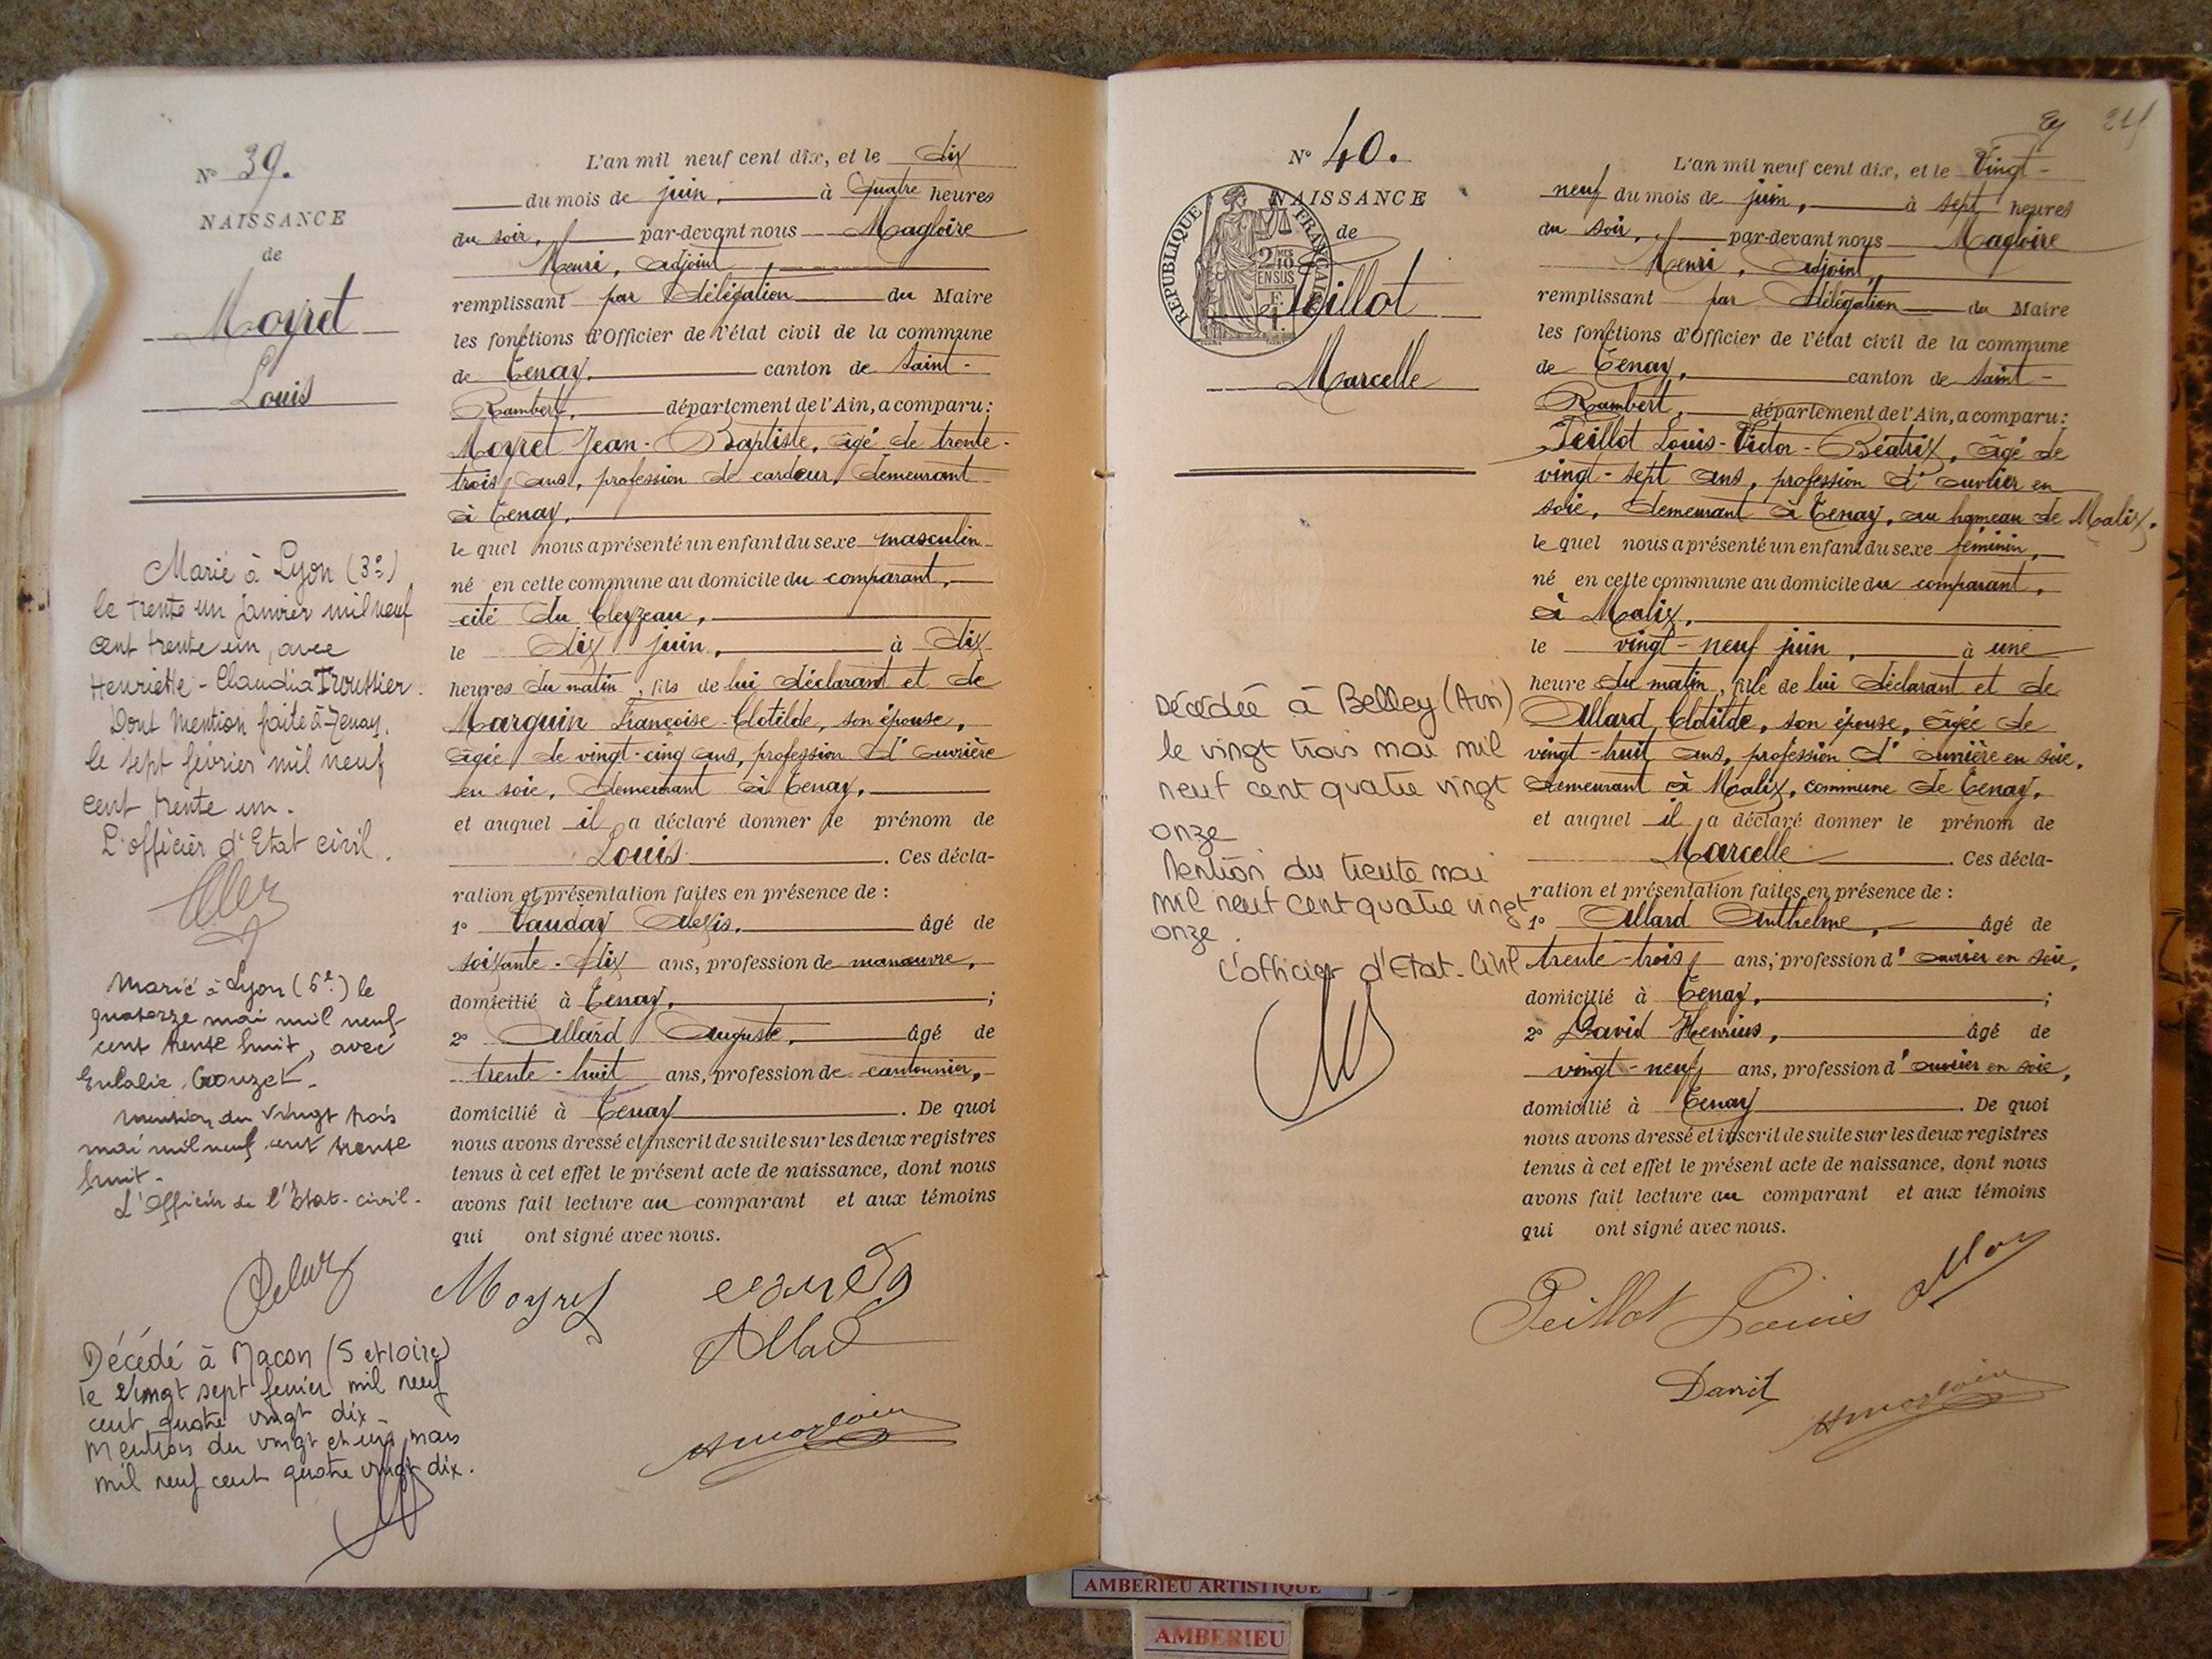 N° 39.
NAISSANCE
de
Moyret
Louis
Marié à Lyon (3e)
le trente un janvier mil neuf
cent trente un, avec
Henriette-Claudia Troussier.
Dont mention faite à Tenay,
le sept février mil neuf
cent trente un.
L'officier d'Etat civil.
Marié à Lyon (6e) le
quatorze mai mil neuf
cent trente huit, avec
Eulalie Crouzet.
Mention du vingt trois
mai mil neuf cent trente
huit.
L'Officier de l'Etat-civil.
Décédé à Macon (S et Loire)
le vingt sept fevrier mil neuf
cent quatre vingt dix.
Mention du vingt et un mars
mil neuf cent quatre vingt dix.
L'an mil neuf cent dix, et le dix
du mois de juin, à quatre heures
du soir, par-devant nous Magloire
Henri, adjoint,
remplissant par délégation du Maire
les fonctions d'Officier de l'état civil de la commune
de Tenay, canton de Saint-
Rambert, département de l'Ain, a comparu:
Moyret Jean-Baptiste, âgé de trente-
trois ans, profession de cardeur, demeurant
à Tenay,
le quel nous a présenté un enfant du sexe masculin
né en cette commune au domicile du comparant,
cité du Cleyzeau,
le dix juin, à dix
heures du matin, fils de lui déclarant et de
Marguin Françoise-Clotilde, son épouse,
âgée de vingt-cinq ans, profession d'ouvrière
en soie, demeurant à Tenay,
et auquel il a déclaré donner le prénom de
Louis. Ces décla-
ration et présentation faites en présence de :
1° Tauday Alexis, âgé de
soixante-dix ans, profession de manœuvre,
domicilié à Tenay, ;
2° Allard Auguste, âgé de
trente-huit ans, profession de cantonnier,
domicilié à Tenay. De quoi
nous avons dressé et inscrit de suite sur les deux registres
tenus à cet effet le présent acte de naissance, dont nous
avons fait lecture au comparant et aux témoins
qui ont signé avec nous.
Moyret
Allard
Hmagloire
N° 40.
NAISSANCE
de
REPUBLIQUE FRANÇAISE
2/10
EN SUS
Peillot
Marcelle
Décédée à Belley (Ain)
le vingt trois mai mil
neuf cent quatre vingt
onze
Mention du trente mai
mil neuf cent quatre vingt
onze.
L'officier d'Etat-Civil
L'an mil neuf cent dix, et le vingt-
neuf du mois de juin, à sept heures
du soir, par-devant nous Magloire
Henri, adjoint,
remplissant par délégation du Maire
les fonctions d'Officier de l'état civil de la commune
de Tenay, canton de Saint-
Rambert, département de l'Ain, a comparu:
Peillot Louis-Victor-Béatrix, âgé de
vingt-sept ans, profession d'ouvrier en
soie, demeurant à Tenay, au hameau de Malix,
le quel nous a présenté un enfant du sexe féminin,
né en cette commune au domicile du comparant,
à Malix,
le vingt-neuf juin, à une
heure du matin, fille de lui déclarant et de
Allard Clotilde, son épouse, âgée de
vingt-huit ans, profession d'ouvrière en soie,
demeurant à Malix, commune de Tenay,
et auquel il a déclaré donner le prénom de
Marcelle. Ces décla-
ration et présentation faites en présence de :
1° Allard Anthelme, âgé de
trente-trois ans, profession d'ouvrier en soie,
domicilié à Tenay, ;
2° David Henrius, âgé de
vingt-neuf ans, profession d'ouvrier en soie,
domicilié à Tenay. De quoi
nous avons dressé et inscrit de suite sur les deux registres
tenus à cet effet le présent acte de naissance, dont nous
avons fait lecture au comparant et aux témoins
qui ont signé avec nous.
Peillot Louis
David
Hmagloire
AMBERIEU ARTISTIQUE
AMBERIEU